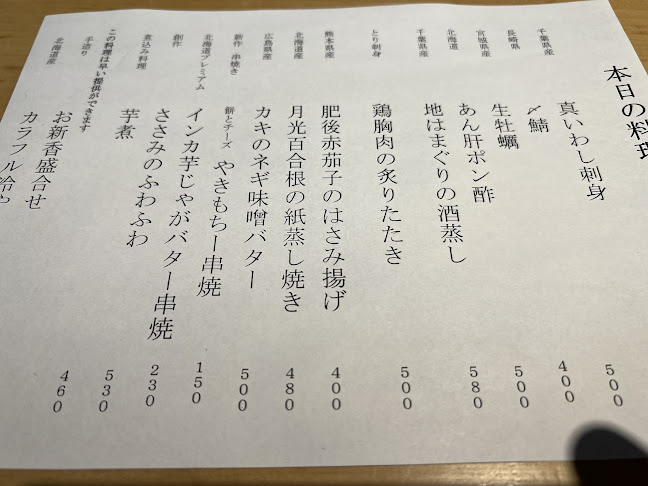 本日の料理
千葉県産 真いわし刺身
長崎県 〆鯖 500
宮城県産 生牡蠣 400
北海道 あん肝ポン酢 500
千葉県産 地はまぐりの酒蒸し 580
とり刺身 鶏胸肉の炙りたたき 500
熊本県産 肥後赤茄子のはさみ揚げ 400
北海道産 月光百合根の紙蒸し焼き 480
広島県産 カキのネギ味噌バター 500
新作 串焼き 餅とチーズ やきもちー串焼 150
北海道プレミアム インカ芋じゃがバター串焼 230
創作 ささみのふわふわ 530
煮込み料理 芋煮 460
この料理は早い提供ができます
手造り お新香盛合せ
北海道産 カラフル冷や